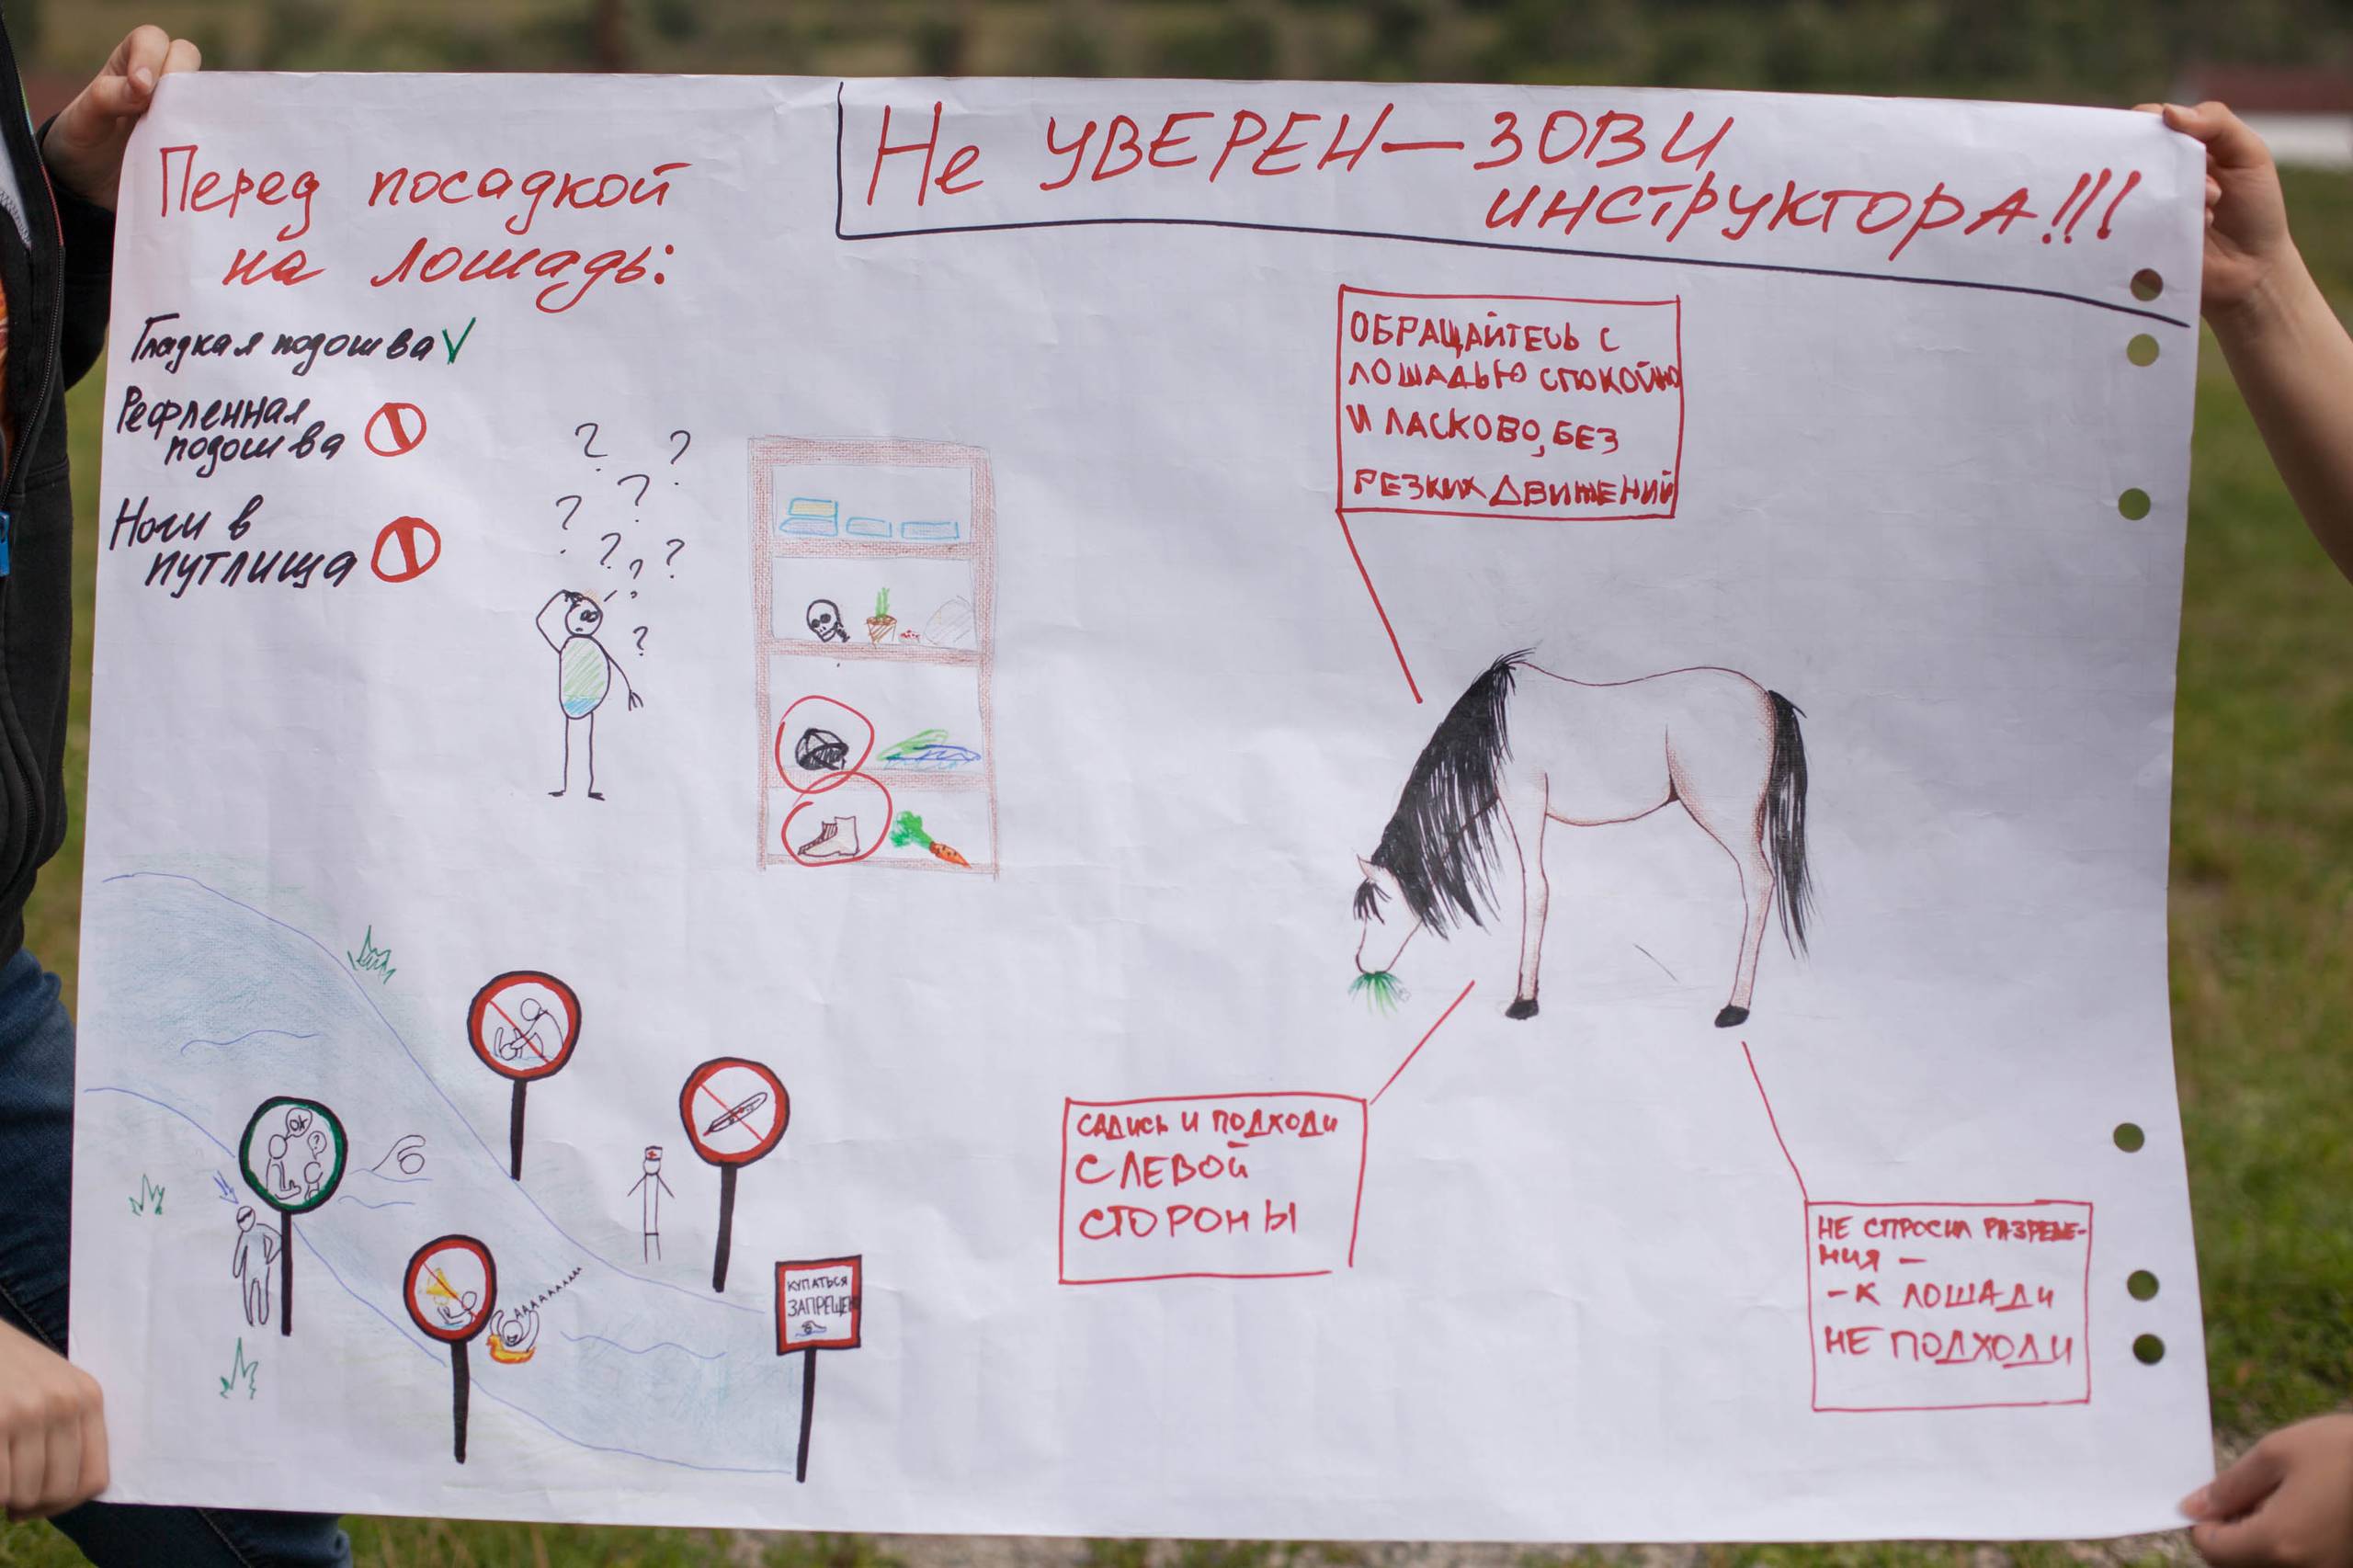 Не УВЕРЕН — ЗОВИ
ИНСТРУКТОРА!!!
Перед посадкой
на лошадь:
Гладкая подошва
Рефленная
подошва
Ноги в
путлища
? ?
?
?
? ? ?
?
ОБРАЩАЙТЕСЬ С
ЛОШАДЬЮ СПОКОЙНО
И ЛАСКОВО, БЕЗ
РЕЗКИХ ДВИЖЕНИЙ
САДИСЬ И ПОДХОДИ
С ЛЕВОЙ
СТОРОНЫ
НЕ СПРОСИЛ РАЗРЕШЕ-
НИЯ —
- К ЛОШАДИ
НЕ ПОДХОДИ
ОК
?
АААААААА
КУПАТЬСЯ
ЗАПРЕЩЕН